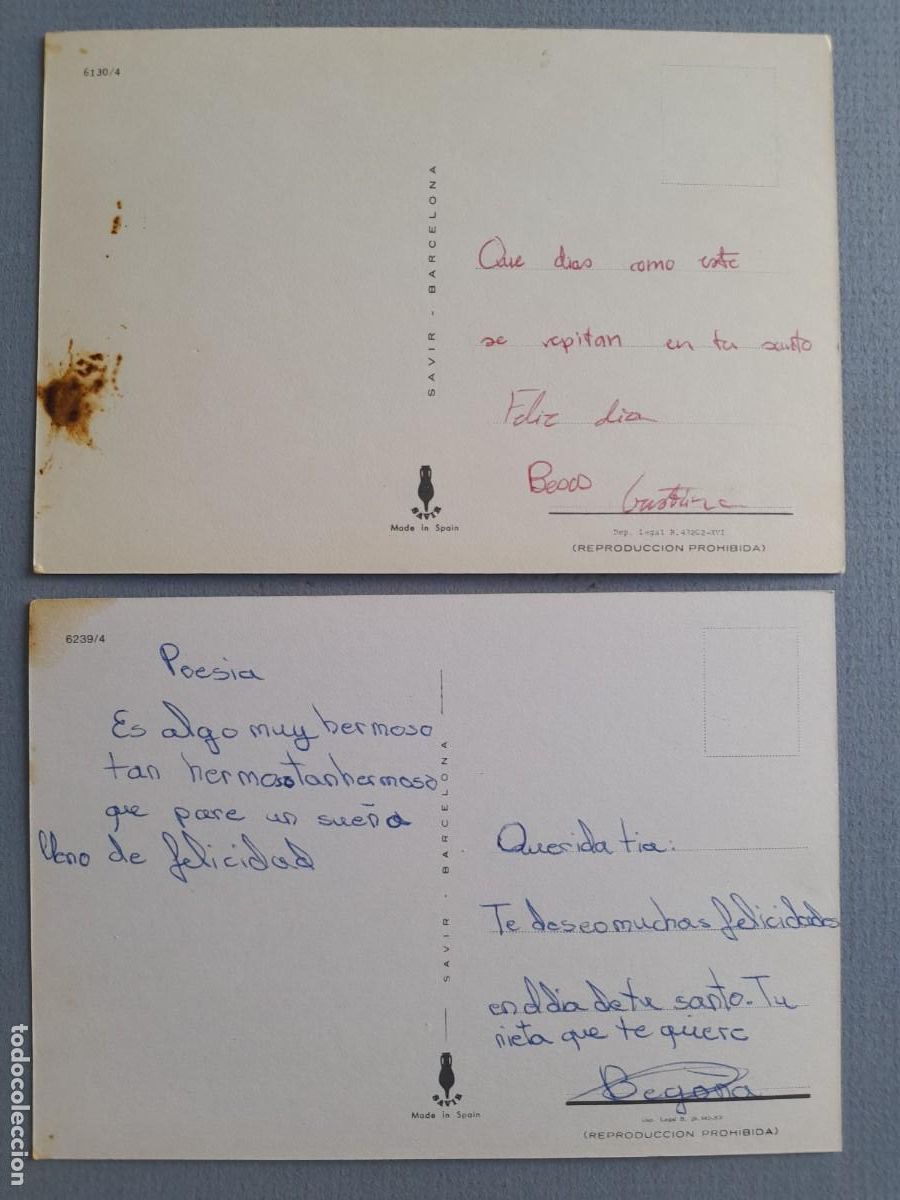 6130/4
SAVIR - BARCELONA
Que dias como este
se repitan en tu santo
Feliz dia
Besos Cristina
SAVIR
Made in Spain
Dep. Legal B. 43202-XVI
(REPRODUCCION PROHIBIDA)
6239/4
Poesia
Es algo muy hermoso
tan hermoso tan hermoso
que pare un sueño
lleno de felicidad
SAVIR - BARCELONA
Querida tia:
Te deseo muchas felicidades
en el dia de tu santo. Tu
nieta que te quiere
Begoña
SAVIR
Made in Spain
Dep. Legal B.
(REPRODUCCION PROHIBIDA)
todocoleccion.net